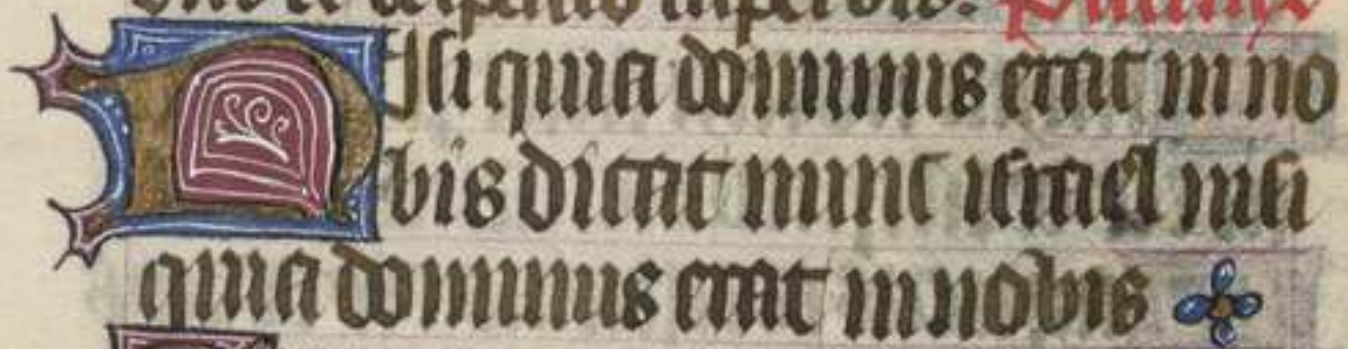 et despectio superbis.
Nisi quia dominus erat in no
bis dicat nunc israel nisi
quia dominus erat in nobis